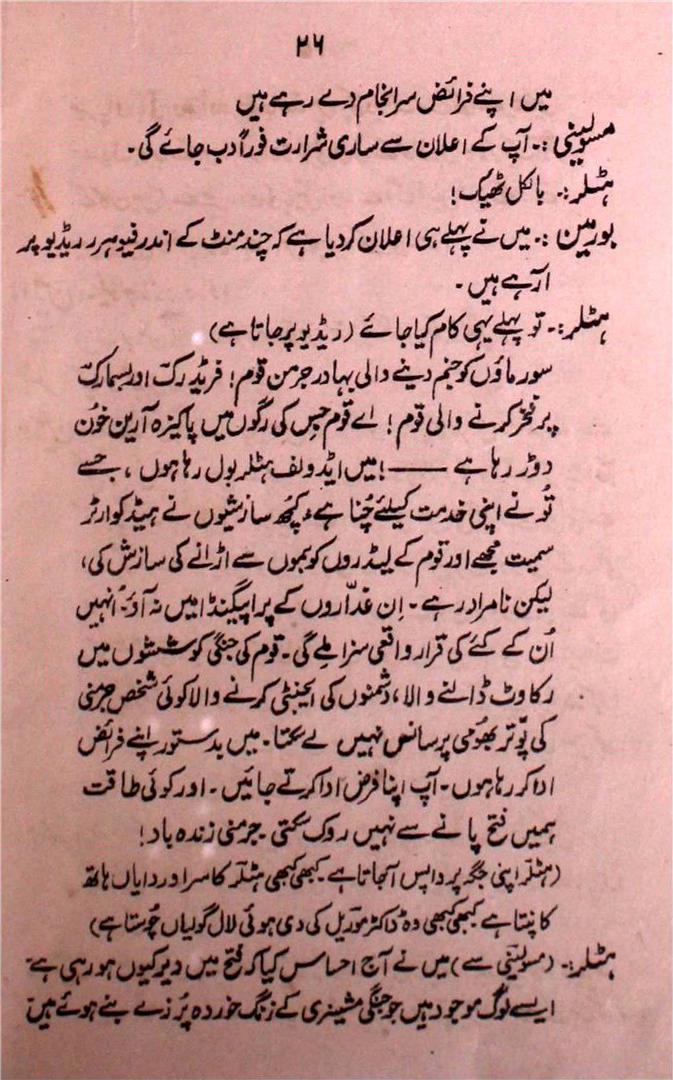 ۲۶
میں اپنے فرائض سرانجام دے رہے ہیں
مسولینی :۔ آپ کے اعلان سے ساری شرارت فوراً دب جائے گی۔
ہٹلر :۔ بالکل ٹھیک !
بورمین :۔ میں نے پہلے ہی اعلان کر دیا ہے کہ چند منٹ کے اندر فیوہرر ریڈیو پر
آرہے ہیں ۔
ہٹلر :۔ تو پہلے یہی کام کیا جائے (ریڈیو پر جاتا ہے)
سورماؤں کو جنم دینے والی بہادر جرمن قوم! فریڈرک اور بسمارک
پر فخر کرنے والی قوم! اے قوم جس کی رگوں میں پاکیزہ آرین خون
دوڑ رہا ہے ——! میں ایڈولف ہٹلر بول رہا ہوں ، جسے
تُو نے اپنی خدمت کیلئے چُنا ہے، کچھ سازشیوں نے ہیڈ کوارٹر
سمیت مجھے اور قوم کے لیڈروں کو بموں سے اڑانے کی سازش کی،
لیکن نامراد رہے ۔ اِن غدّاروں کے پراپیگنڈا میں نہ آؤ۔ انہیں
اُن کے کئے کی قرار واقعی سزا ملے گی۔ قوم کی جنگی کوششوں میں
رکاوٹ ڈالنے والا، دشمنوں کی ایجنٹی کرنے والا کوئی شخص جرمنی
کی پوتر بھومی پر سانس نہیں لے سکتا۔ میں بدستور اپنے فرائض
ادا کر رہا ہوں۔ آپ اپنا فرض ادا کرتے جائیں ۔ اور کوئی طاقت
ہمیں فتح پانے سے نہیں روک سکتی۔ جرمنی زندہ باد!
(ہٹلر اپنی جگہ پر واپس آ جاتا ہے۔ کبھی کبھی ہٹلر کا سر اور دایاں ہاتھ
کانپتا ہے کبھی کبھی وہ ڈاکٹر موریل کی دی ہوئی لال گولیاں چوستا ہے)
ہٹلر :۔ (مسولینی سے) میں نے آج احساس کیا کہ فتح میں دیر کیوں ہو رہی ہے۔
ایسے لوگ موجود ہیں جو جنگی مشینری کے زنگ خوردہ پرزے بنے ہوئے ہیں